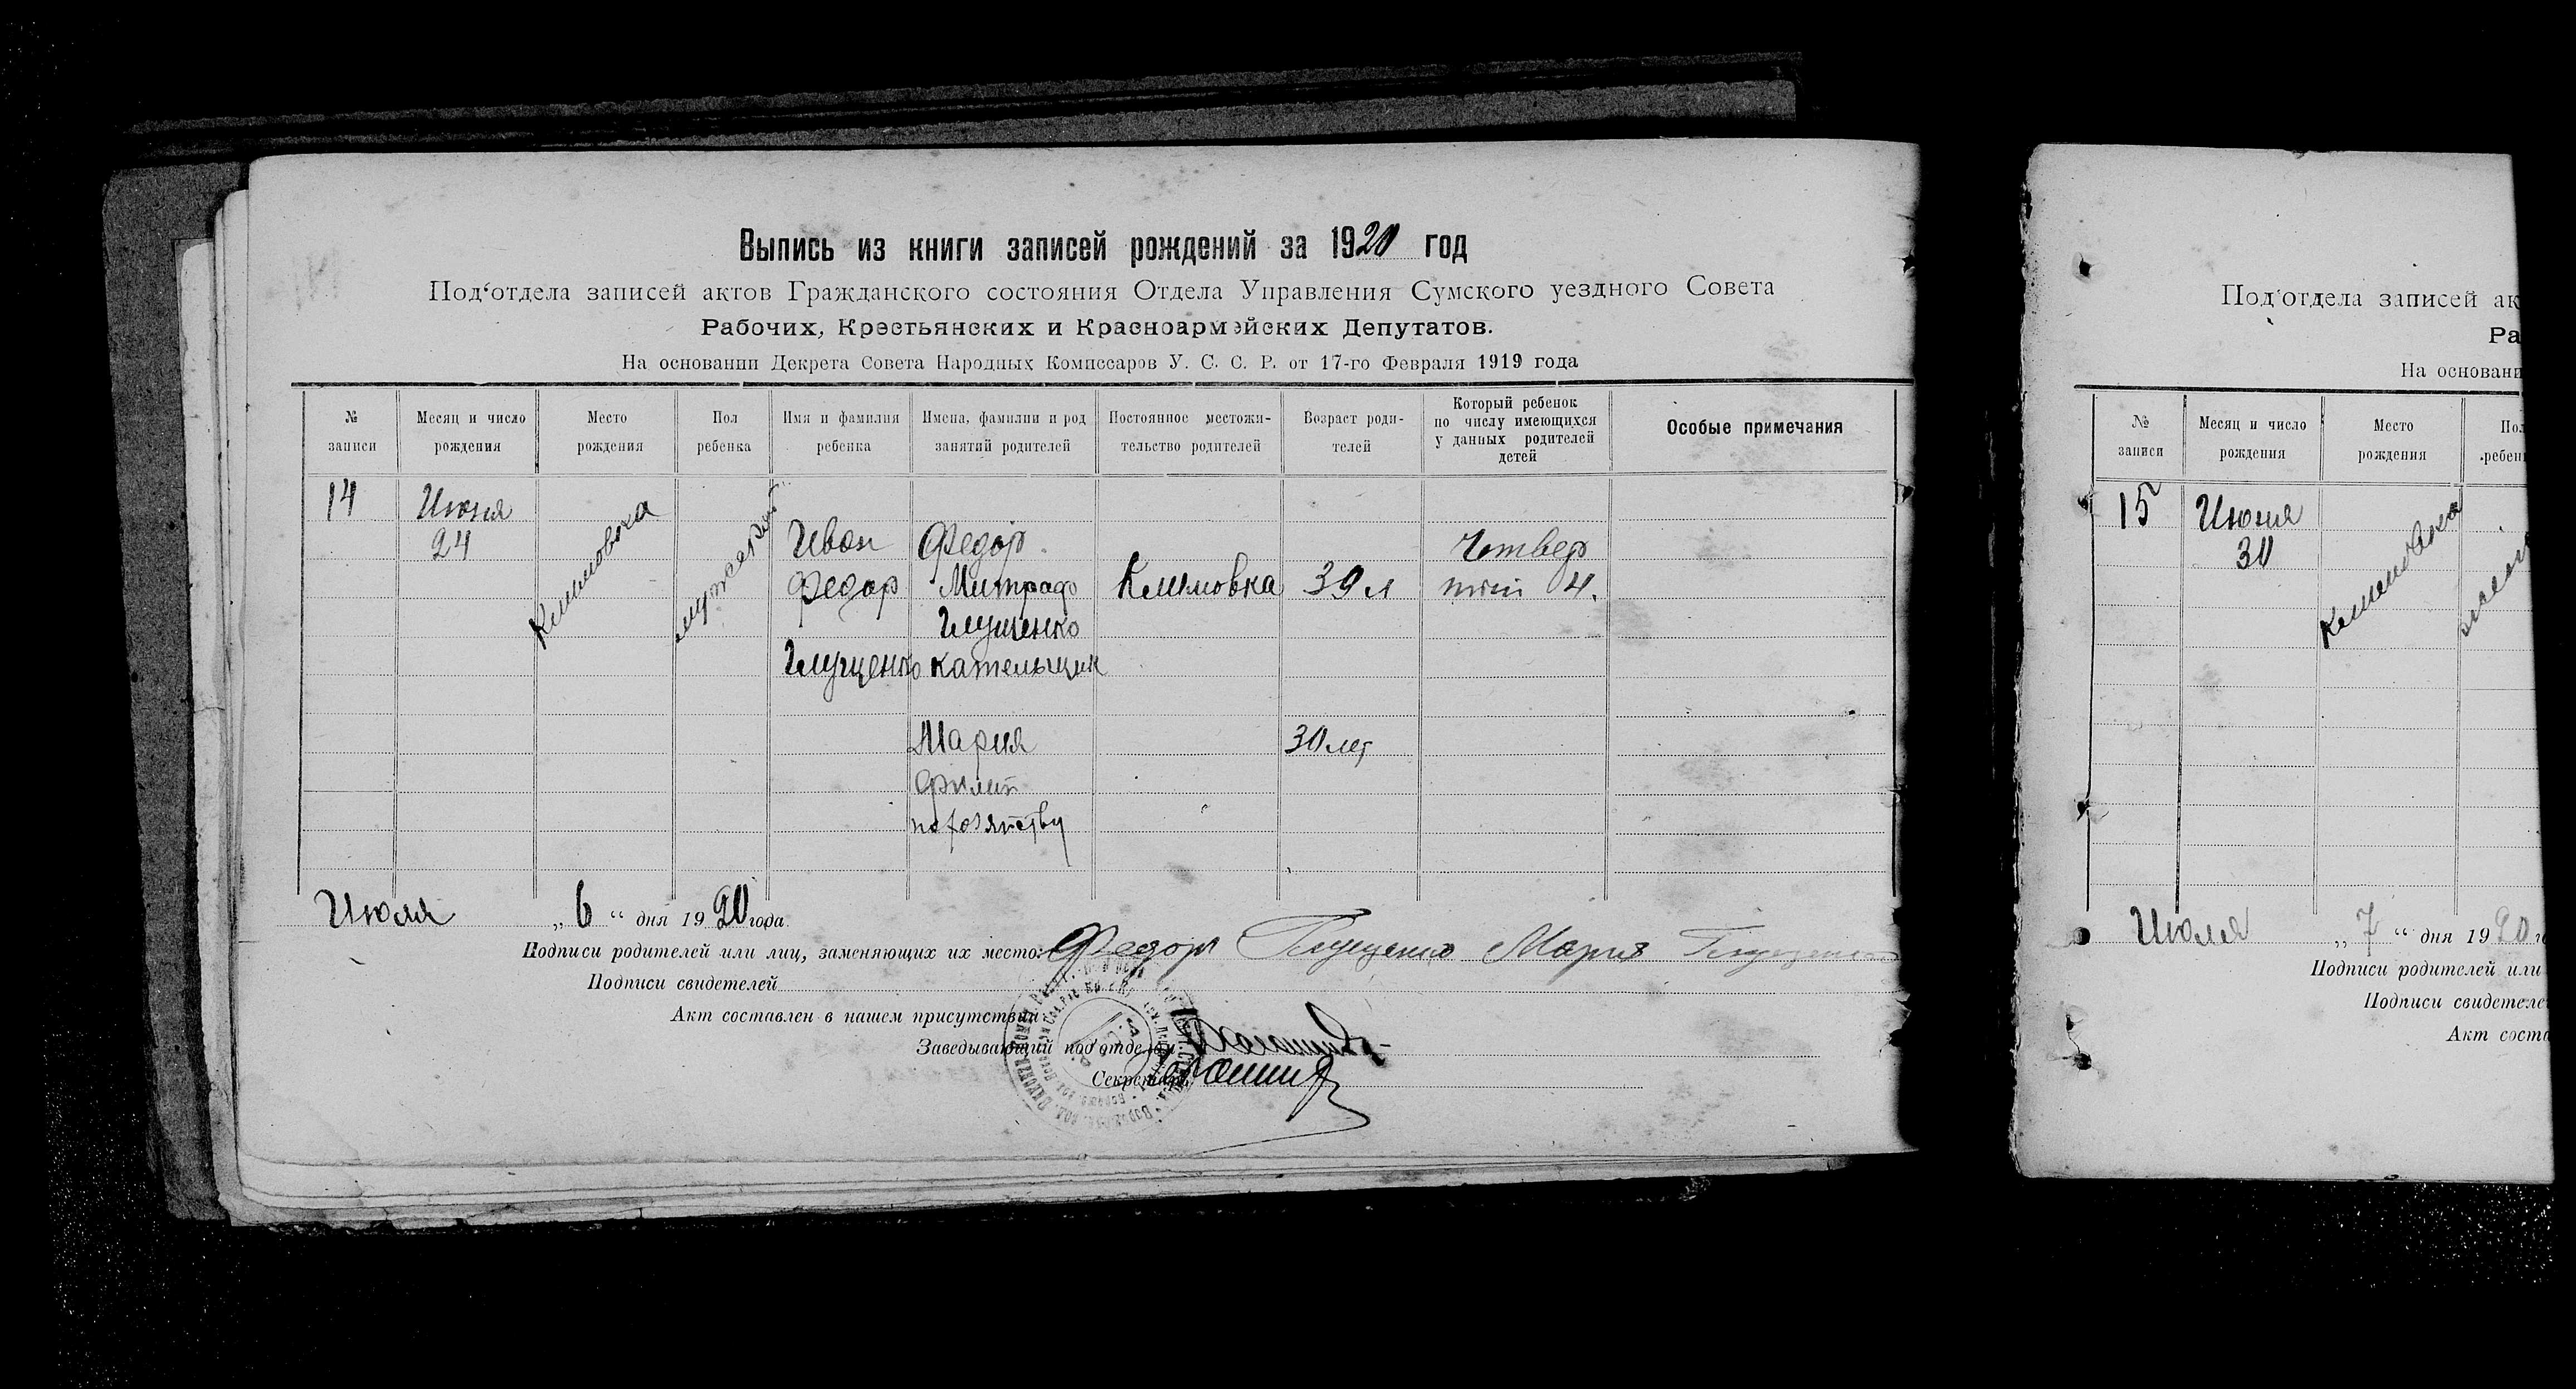 Выпись из книги записей рождений за 1920 год
Под‘отдела записей актов Гражданского состояния Отдела Управления Сумского уездного Совета
Рабочих, Крестьянских и Красноармейских Депутатов.
На основании Декрета Совета Народных Комиссаров У. С. С. Р. от 17-го Февраля 1919 года
№ записи
Месяц и число рождения
Место рождения
Пол ребенка
Имя и фамилия ребенка
Имена, фамилии и род занятий родителей
Постоянное местожи-тельство родителей
Возраст роди-телей
Который ребенок по числу имеющихся у данных родителей детей
Особые примечания
14
Июня
24
Климовка
Иван
Федор
Глущенко
Федор
Митроф
Глущенко
кательщик
Климовка
39 л
Четвер
тый 4.
Мария
Филип
по хозяйству
30 лет
Июля „ 6 “ дня 1920 года
Подписи родителей или лиц, заменяющих их место: Федор Глущенко Мария Глущенко
Подписи свидетелей
Акт составлен в нашем присутствии
Заведывающий под‘отделом
Секретарь
Под‘отдела записей ак
Ра
На основани
№ записи
Месяц и число рождения
Место рождения
Пол ребен
15
Июня
30
Климовка
Июля „ 7 “ дня 1920 го
Подписи родителей или
Подписи свидетеле
Акт соста